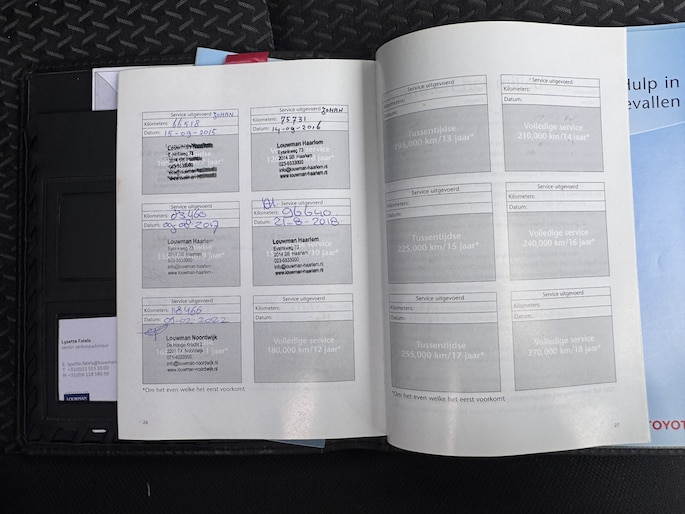 Service uitgevoerd JOHAN
Kilometers: 66518
Datum: 15-09-2015
Louwman Haarlem
2014 SB Haarlem
023-5533000
www.louwman-haarlem.nl
Service uitgevoerd JOHAN
Kilometers: 75731
Datum: 14-09-2016
Louwman Haarlem
Eysinkweg 73
2014 SB Haarlem
023-5533000
info@louwman-haarlem.nl
www.louwman-haarlem.nl
Service uitgevoerd
Kilometers: 83460
Datum: 2017
Louwman Haarlem
Eysinkweg 73
2014 SB Haarlem
023-5533000
info@louwman-haarlem
www.louwman-haarlem.nl
Service uitgevoerd
Kilometers: 96640
Datum: 21-8-2018
Louwman Haarlem
Eysinkweg 73
2014 SB Haarlem
023-5533000
info@louwman-haarlem.nl
www.louwman-haarlem.nl
Service uitgevoerd
Kilometers: 118466
Datum: 2022
Louwman Noordwijk
www.louwman-noordwijk.nl
Service uitgevoerd
Kilometers:
Datum:
Volledige service
180,000 km/12 jaar*
*Om het even welke het eerst voorkomt.
26
Service uitgevoerd
Kilometers:
Datum:
Tussentijdse
195,000 km/13 jaar*
Service uitgevoerd
Kilometers:
Datum:
Volledige service
210,000 km/14 jaar*
Service uitgevoerd
Kilometers:
Datum:
Tussentijdse
225,000 km/15 jaar*
Service uitgevoerd
Kilometers:
Datum:
Volledige service
240,000 km/16 jaar*
Service uitgevoerd
Kilometers:
Datum:
Tussentijdse
255,000 km/17 jaar*
Service uitgevoerd
Kilometers:
Datum:
Volledige service
270,000 km/18 jaar*
*Om het even welke het eerst voorkomt.
27
ulp in
evallen
TOYOT
Lysette Fatels
LOUWMAN